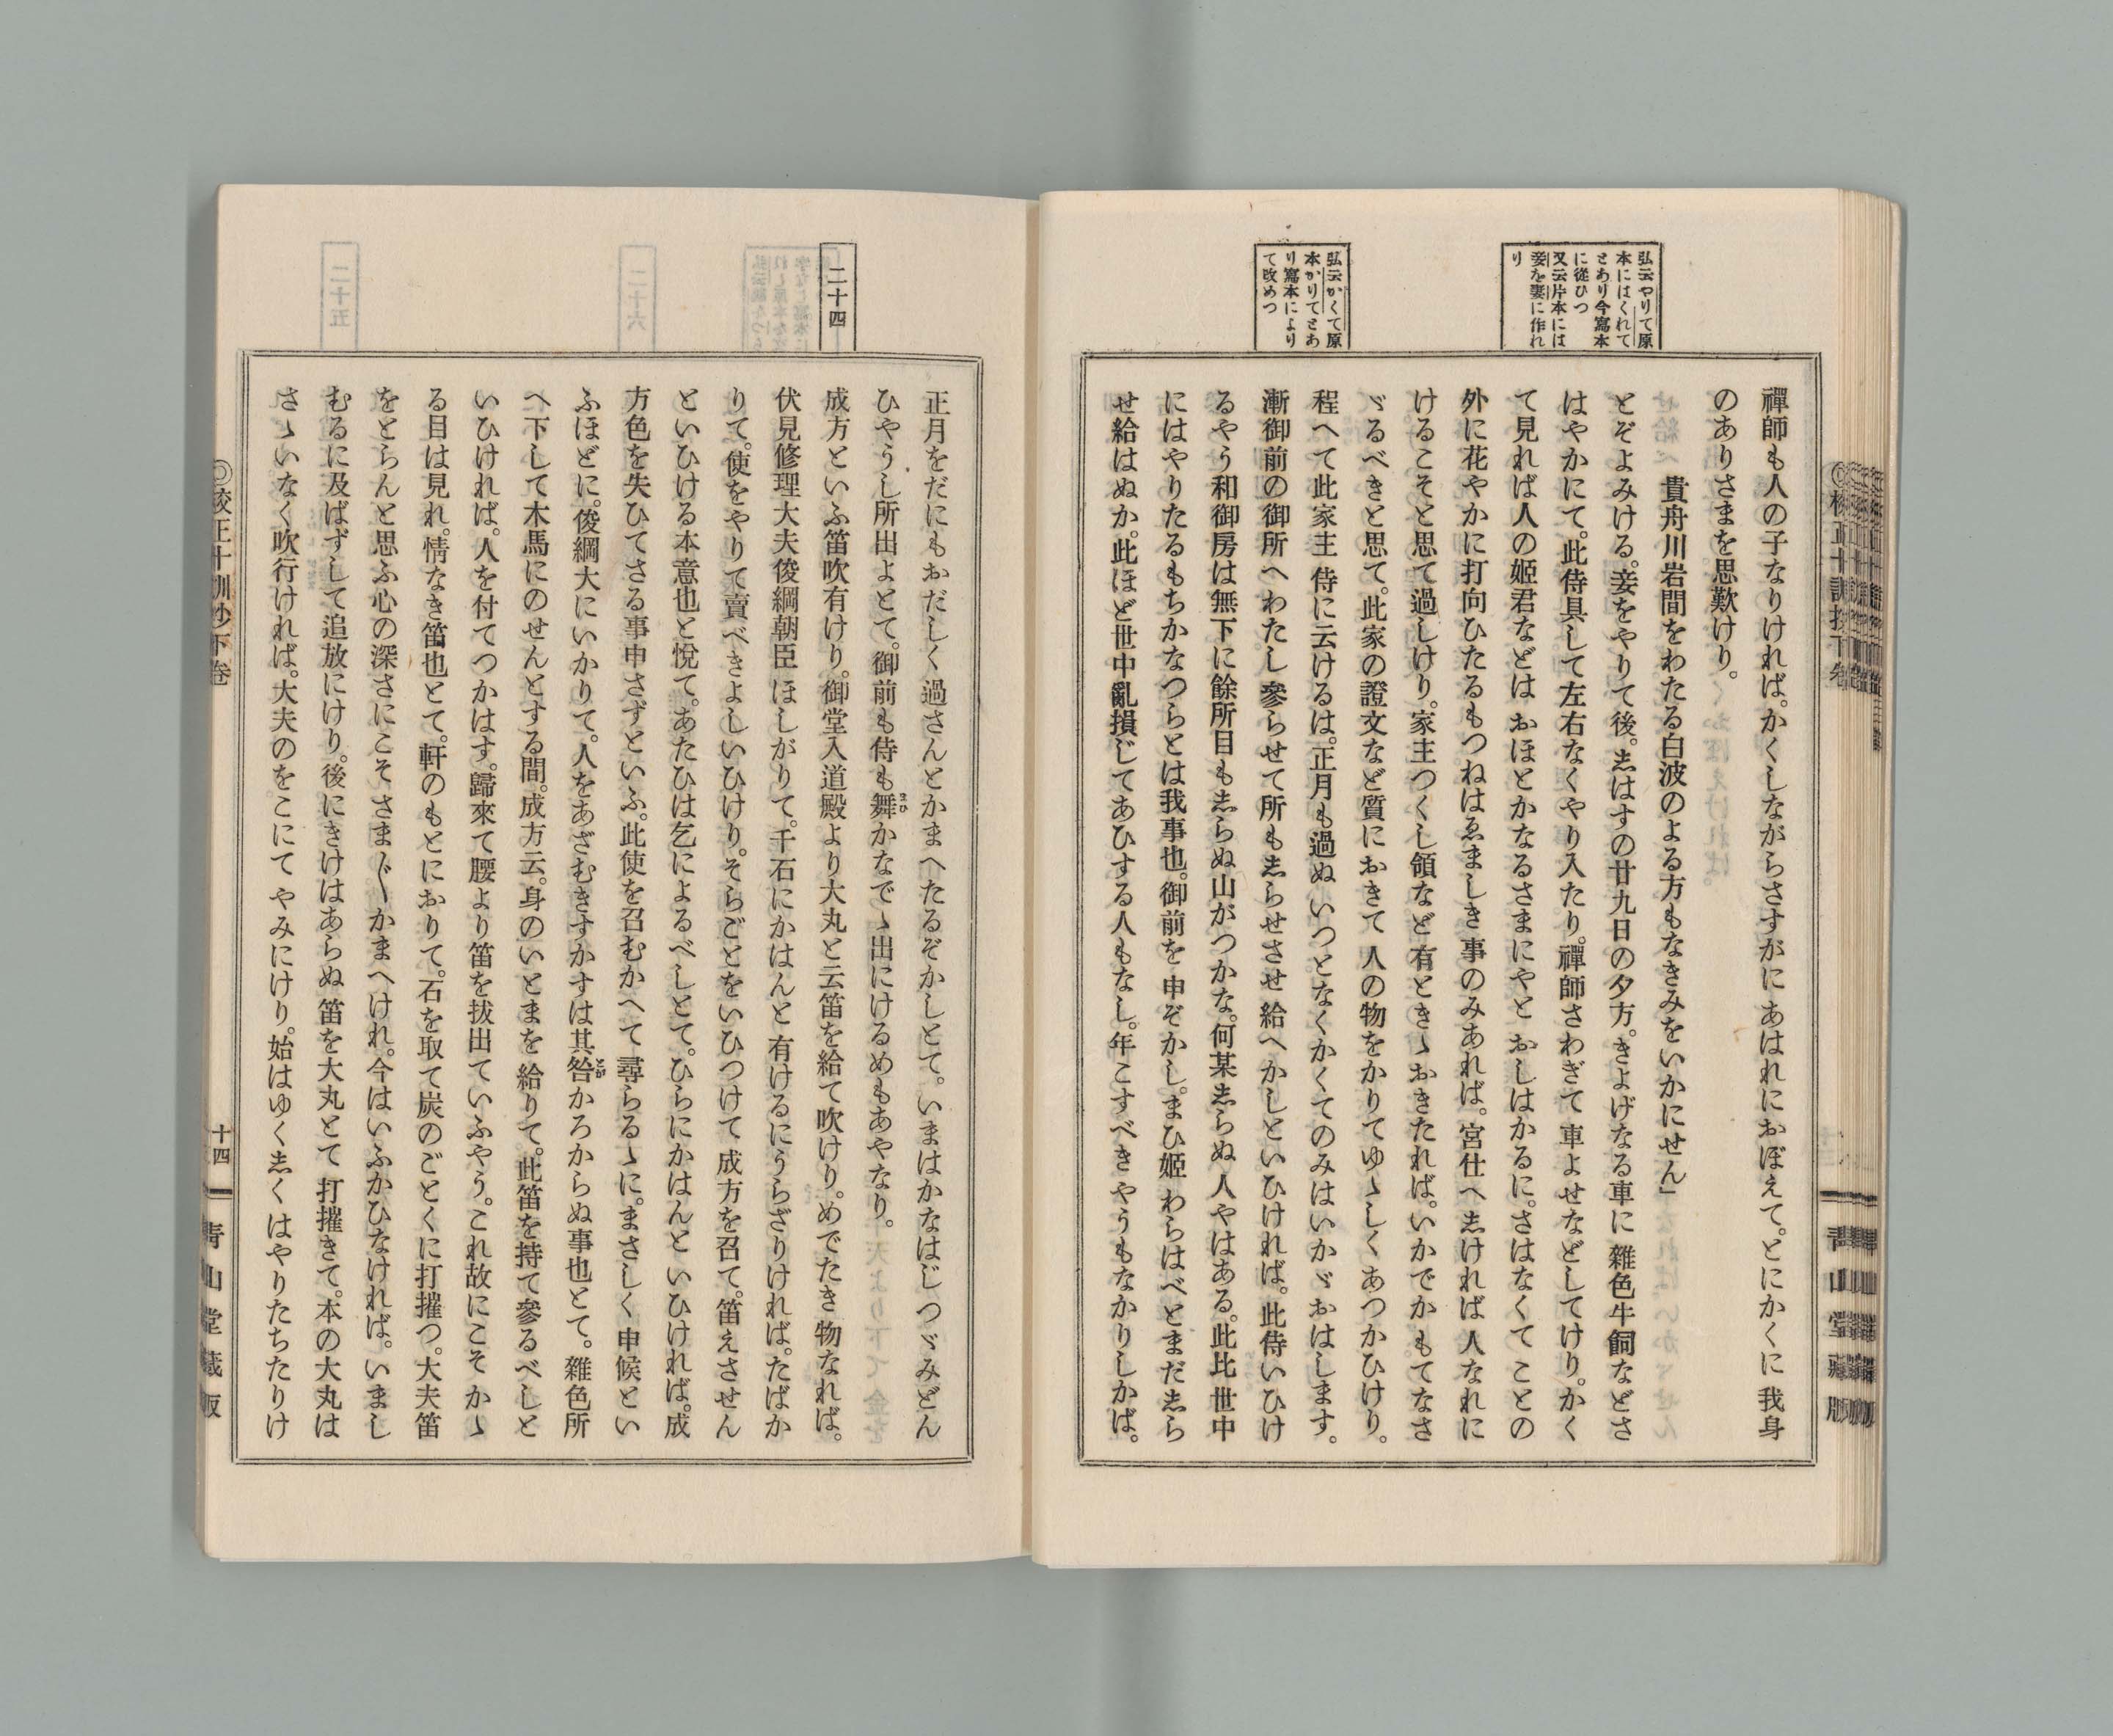 弘云やりて原
本にはくれて
とあり今寫本
に從ひつ
又云片本には
妾を妻に作れ
り
弘云かくて原
本かりてとあ
り寫本により
て改めつ
禪師も人の子なりければ。かくしながらさすがに あはれにおぼえて。とにかくに 我身
のありさまを思歎けり。
貴舟川岩間をわたる白波のよる方もなきみをいかにせん」
とぞよみける。妾をやりて後。志はすの廿九日の夕方。きよげなる車に 雜色牛飼などさ
はやかにて。此侍具して左右なくやり入たり。禪師さわぎて 車よせなどしてけり。かく
て見れば人の姫君などは おほとかなるさまにやと おしはかるに。さはなくて ことの
外に花やかに打向ひたるもつねはゑましき 事のみあれば。宮仕へ志ければ 人なれに
けるこそと思て過しけり。家主つくし領など 有ときゝおきたれば。いかでか もてなさ
ゞるべきと思て。此家の證文など質におきて 人の物をかりてゆゝしく あつかひけり。
程へて此家主 侍に云けるは。正月も過ぬ いつとなくかくてのみはいかゞおはします。
漸御前の御所へわたし參らせて所も志らせさせ 給へかしといひければ。此侍いひけ
るやう和御房は無下に餘所目も志らぬ山がつかな。何某志らぬ 人やはある。此比 世中
にはやりたるもちかなつらとは我事也。御前を 申ぞかし。まひ姫 わらはべとまだ志ら
せ給はぬか。此ほど世中亂損じてあひする人もなし。年こすべき やうもなかりしかば。
二十四
正月をだにもおだしく過さんとかまへたるぞかしとて。いまはかなはじつゞみどん
ひやうし所出よとて。御前も侍も舞まひかなでゝ出にけるめもあやなり。
成方といふ笛吹有けり。御堂入道殿より大丸と云笛を給て吹けり。めでたき 物なれば。
伏見修理大夫俊綱朝臣 ほしがりて。千石にかはんと 有けるにうらざりければ。たばか
りて。使をやりて賣べきよしいひけり。そらごとをいひつけて 成方を召て。笛えさせん
といひける本意也と悅て。あたひは乞によるべしとて。ひらにかはんと いひければ。成
方色を失ひてさる事申さずといふ。此使を召むかへて 尋らるゝに。まさしく 申候とい
ふほどに。俊綱大にいかりて。人をあざむきすかすは其咎とがかろからぬ事也とて。雜色所
へ下して木馬にのせんとする間。成方云。身のいとまを 給りて。此笛を持て參るべしと
いひければ。人を付てつかはす。歸來て腰より笛を拔出ていふやう。これ故にこそ かゝ
る目は見れ。情なき笛也とて。軒のもとにおりて。石を取て炭のごとくに打摧つ。大夫笛
をとらんと思ふ心の深さにこそ さま〴〵かまへけれ。今はいふかひなければ。いまし
むるに及ばずして追放にけり。後にきけはあらぬ 笛を大丸とて 打摧きて。本の大丸は
さゝいなく吹行ければ。大夫のをこにて やみにけり。始はゆく志く はやりたちたりけ
◎校正十訓抄下卷
十四
靑山堂藏版